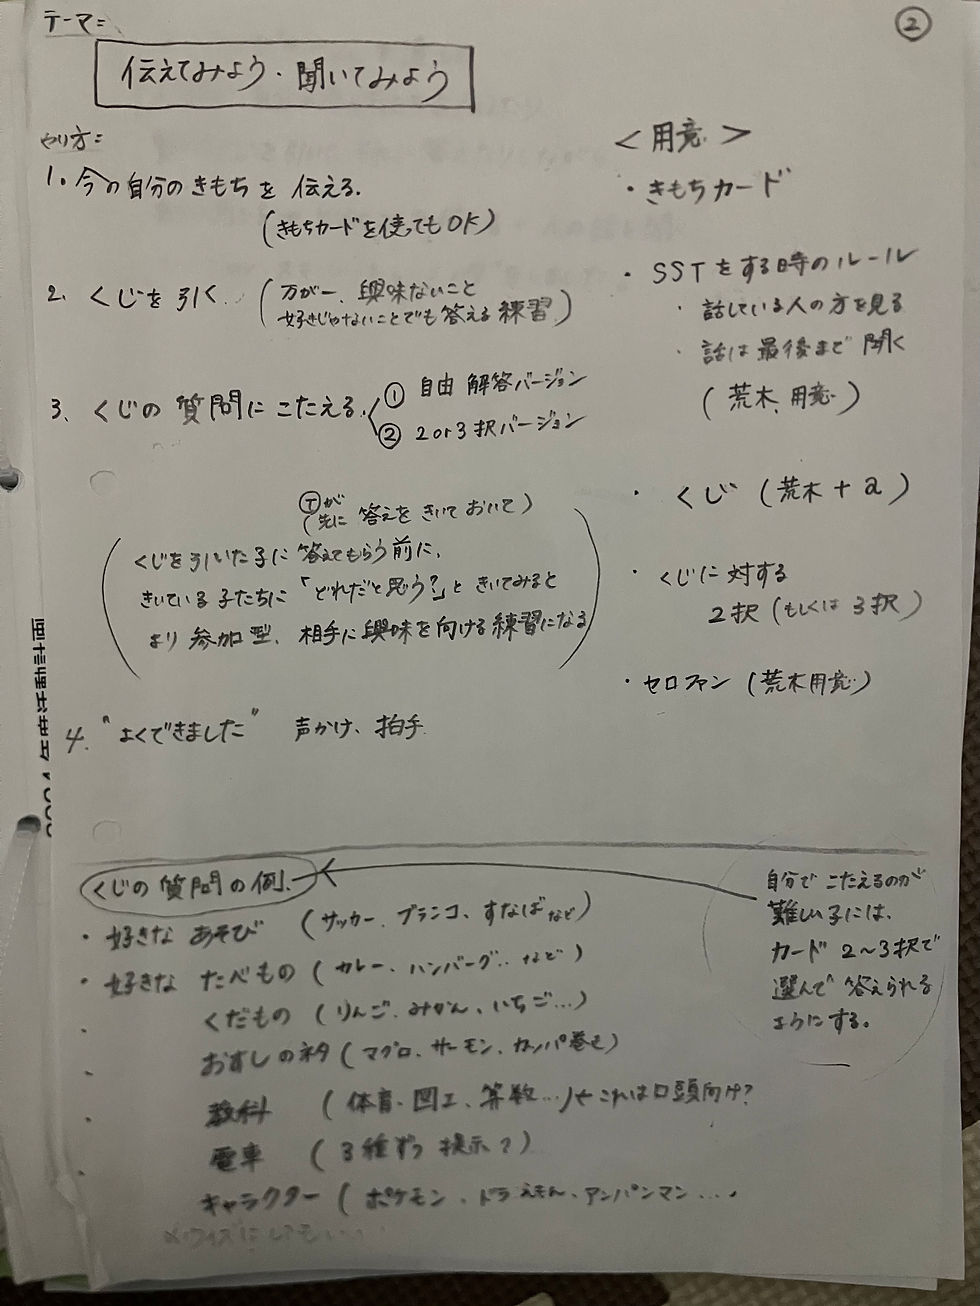 テーマ=
②
伝えてみよう・聞いてみよう
やり方=
1. 今の自分のきもちを 伝える.
(きもちカードを使ってもOK)
2. くじを引く. (万が一、興味ないこと
好きじゃないことでも答える練習)
3. くじの質問にこたえる. ① 自由解答バージョン
② 2or3択バージョン
Ⓣが
(先に 答えを きいて おいて)
くじを引いた子に 答えてもらう前に、
きいている子たちに「どれだと思う?」と きいてみると
より 参加型、相手に興味を向ける練習になる
4. "よくできました" 声かけ、拍手
<用意>
・きもちカード
・SSTをする時のルール
・話している人の方を見る
・話は最後まで聞く
(荒木、用意)
・くじ (荒木+a)
・くじに対する
2択(もしくは3択)
・セロファン (荒木用意)
くじの質問の例.
・好きな あそび (サッカー、ブランコ、すなばなど)
・好きな たべもの (カレー、ハンバーグ..など)
・くだもの (りんご、みかん、いちご...)
・おすしのネタ (マグロ、サーモン、カッパ巻き)
・教科 (体育、図工、算数...)← これは口頭向け?
・電車 (3種ずつ提示?)
・キャラクター (ポケモン、ドラえもん、アンパンマン....
自分で こたえるのが
難しい子には、
カード 2〜3択で
選んで 答えられる
ようにする。